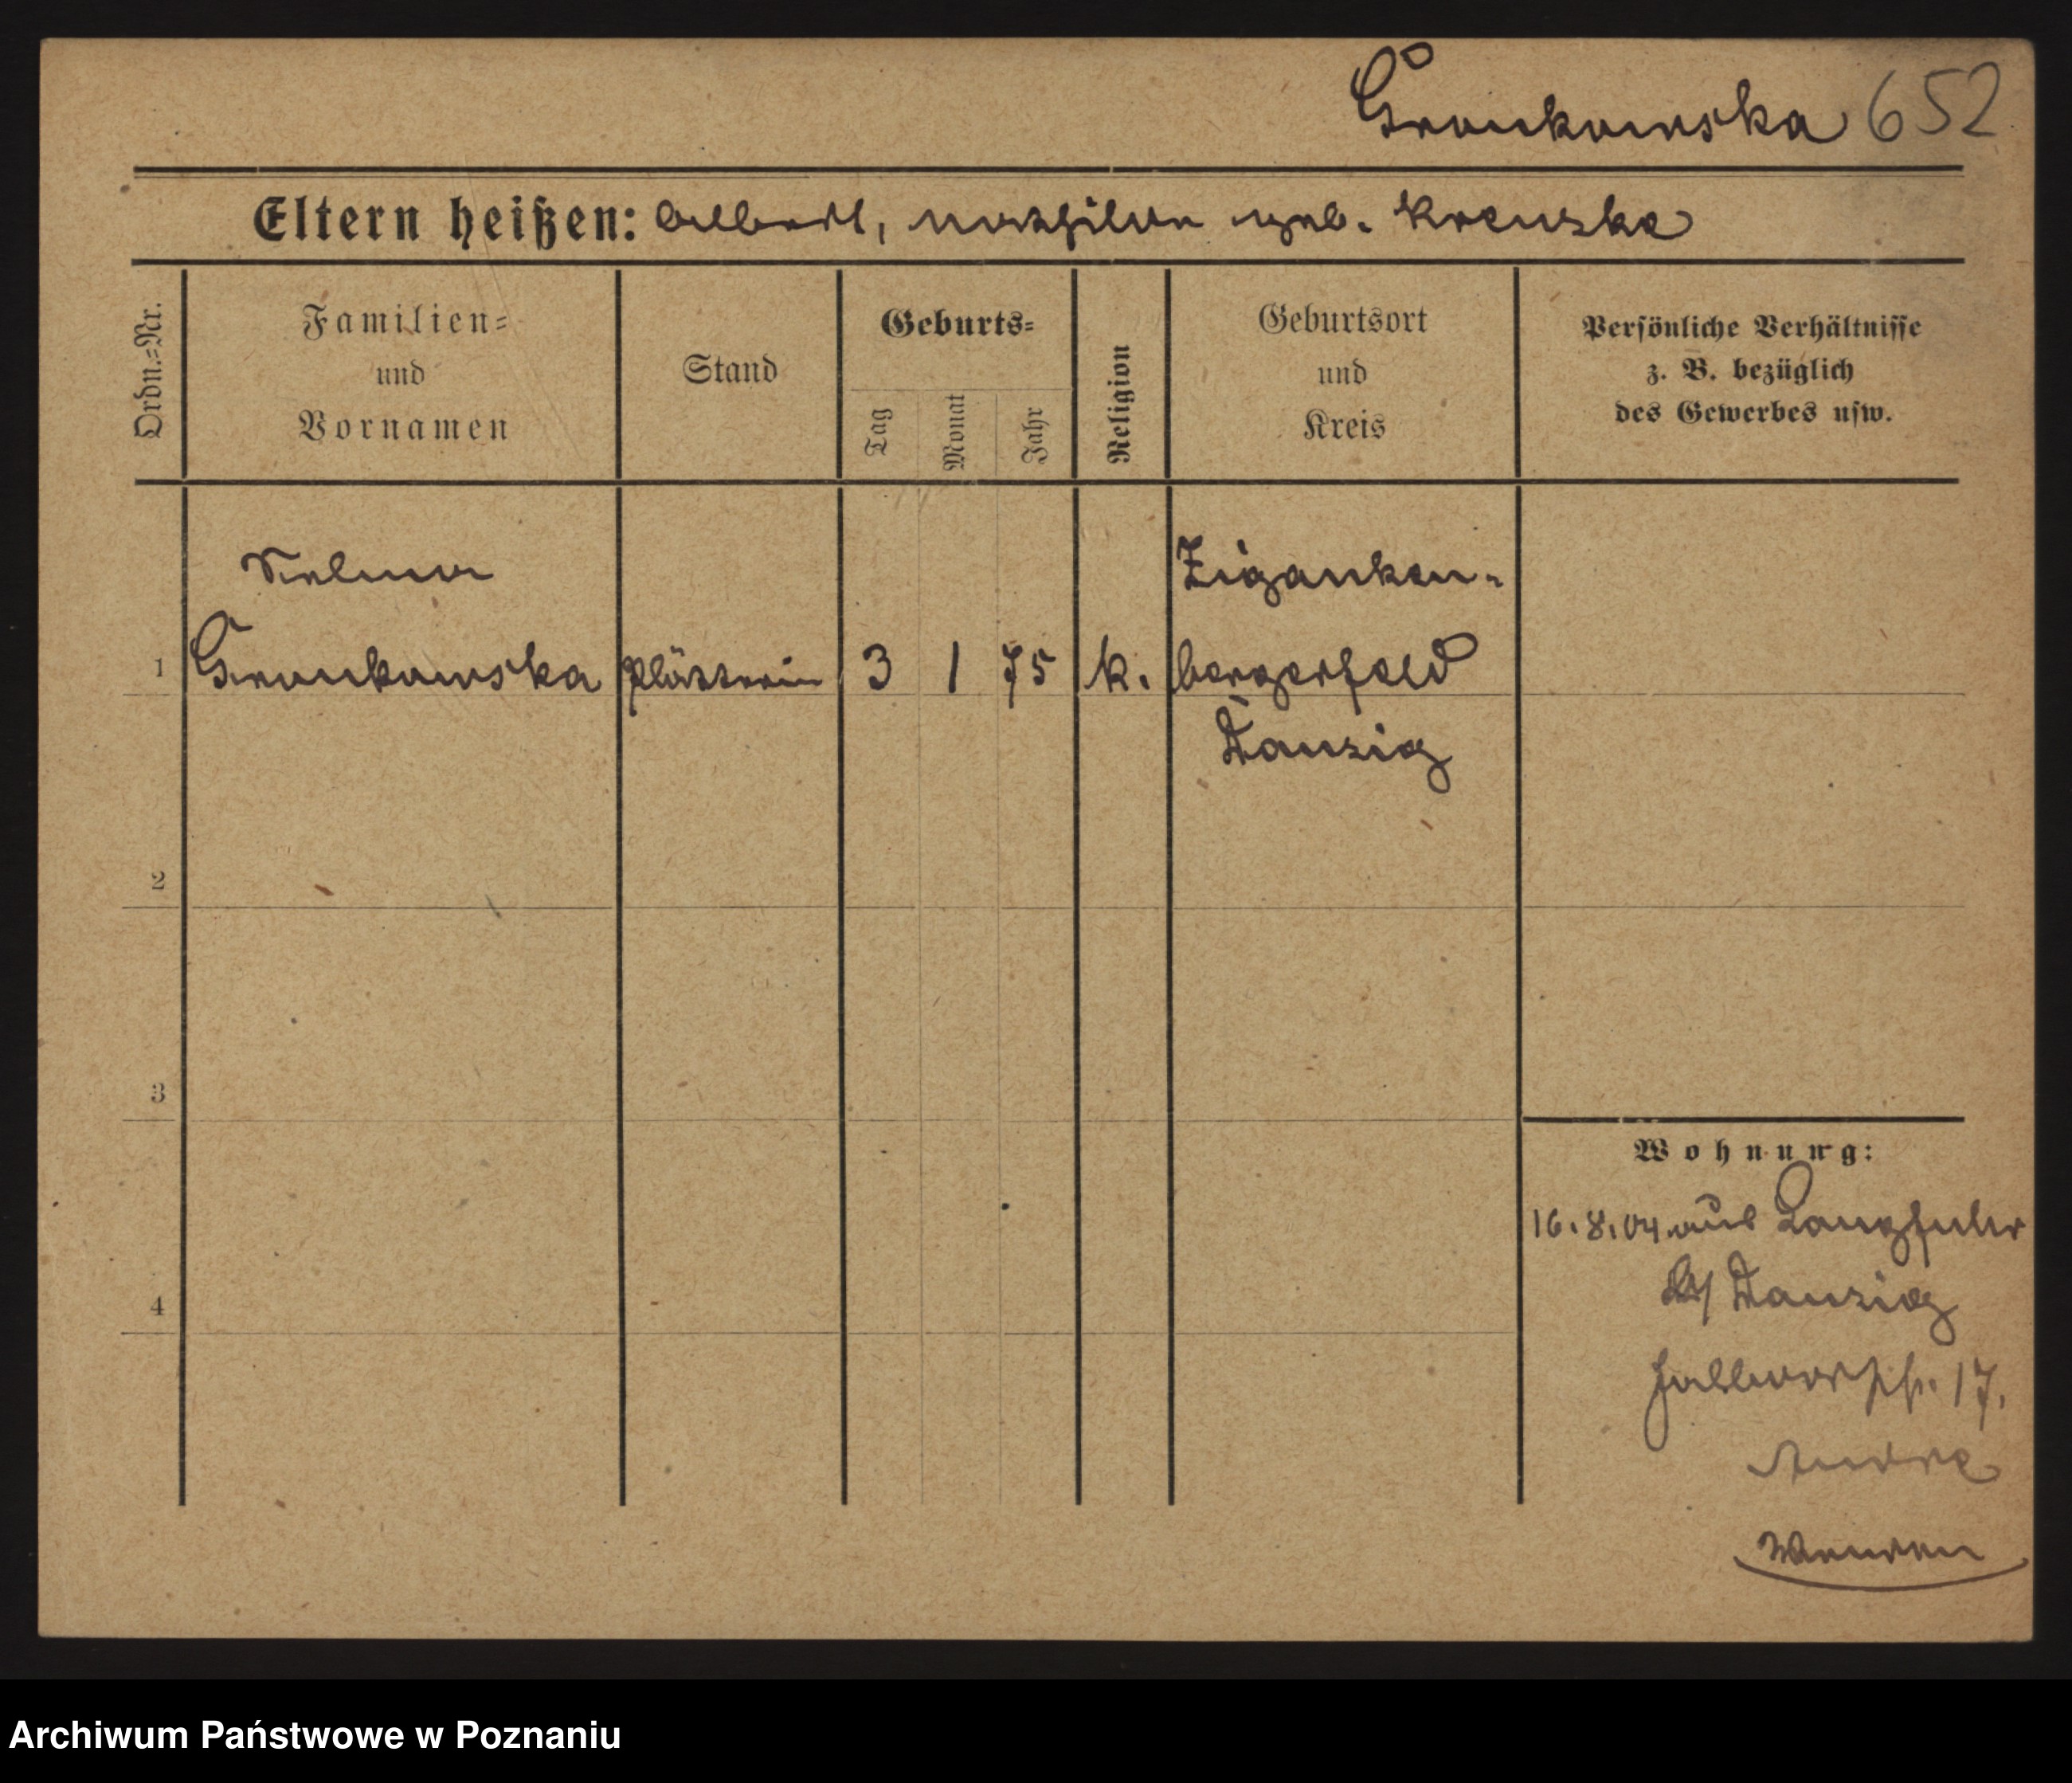 Gronkowska 652
Eltern heißen: Albert, Mathilde geb. Krenzke
Ordn.=Nr.
Familien=
und
Vornamen
Stand
Geburts=
Tag
Monat
Jahr
Religion
Geburtsort
und
Kreis
Persönliche Verhältnisse
z. B. bezüglich
des Gewerbes usw.
Selma
Ziganken-
1 Gronkowska Plätterin 3 1 75 k. bergerfeld
Danzig
2
3
4
Wohnung:
16.8.04 aus Langfuhr
Danzig
17.
Wenden
Archiwum Państwowe w Poznaniu